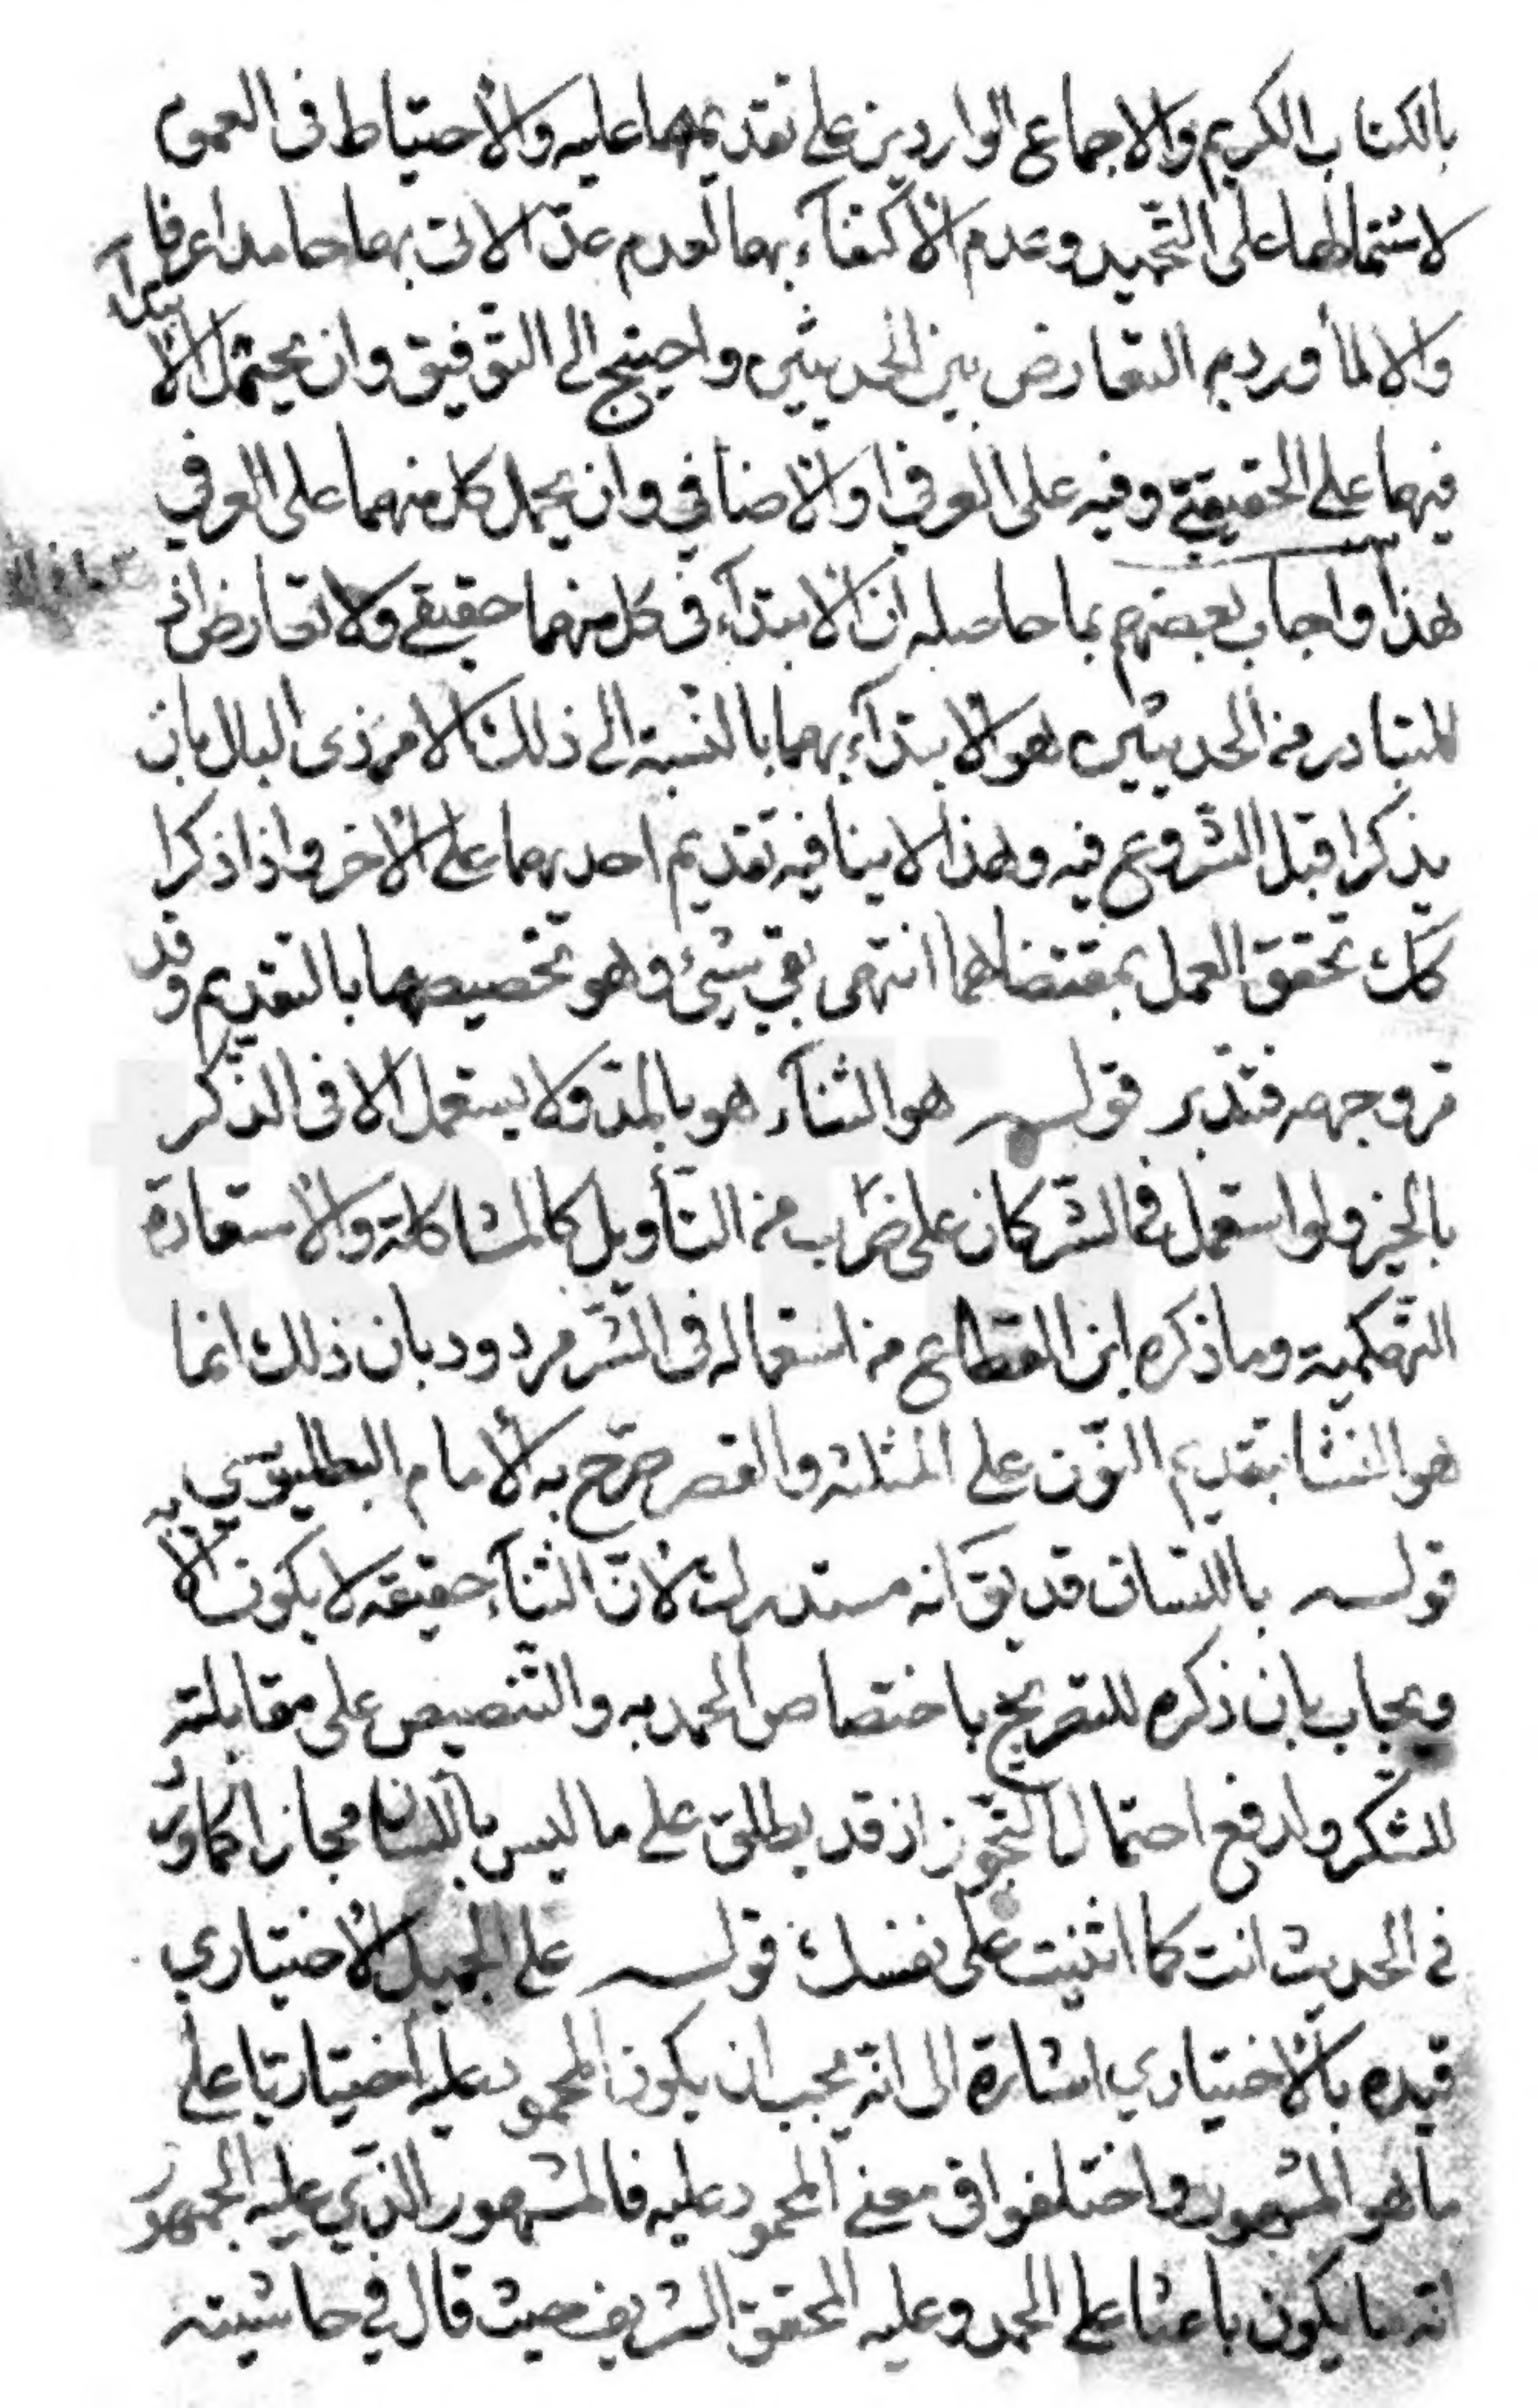 بالكتاب الكريم والاجماع الواردين على تقديمهما عليه والاحتياط فى العموم
لاشتمالهما على التحميد وعدم الاكتفآء بهما لعدم عدّ الاتى بهما حامدا عرفا
والا لما ورد م التعارض بين الحديثين واحتيج الى التوفيق وان يحتمل الابتدآء
فيهما على الحقيقي وفيه على العرفي او الاضافي وان يحمل كل منهما على العرفي
هذا واجاب بعضهم بما حاصله ان الابتدآء فى كل منهما حقيقي ولا تعارض اذ
المتبادر من الحديثين هو الابتدآء بهما بالنسبة الى ذلك الامر ذى البال بان
يذكرا قبل الشروع فيه وهذا لا ينافيه تقديم احديهما على الاخر واذا ذكرا
كك تحقق العمل بمقتضاهما انتهى بقي شيئ وهو تخصيصها بالتقديم وقد
مر وجهه فتدبر قوله هو الثنآء هو بالمد ولا يستعمل الا فى الذكر
بالخير ولو استعمل فى الشر كان على ضرب من التأويل كالمشاكلة والاستعارة
التهكمية وما ذكره ابن القطاع من استعماله فى الشر مردود بان ذلك انما
هو النثا بتقديم النون على المثلثة والقصر صرّح به الامام البطليوسي
قوله باللسان قد يق انه مستدرك لانّ الثنآء حقيقة لا يكون الا به
ويجاب بان ذكره للتصريح باختصاص الحمد به والتنصيص على مقابلته
للشكر ولدفع احتمال التجوّز اذ قد يطلق على ما ليس باللسان مجازا كما ورد
في الحديث انت كما اثنيت على نفسك قوله على الجميل الاختياري
قيده بالاختياري اشارة الى انّه يجب ان يكون المحمود عليه اختياريّا على
ما هو المشهور واختلفوا فى معنى المحمود عليه فالمشهور الذي عليه الجمهور
انّه ما يكون باعثا على الحمد وعليه المحقق الشريف حيث قال في حاشيته